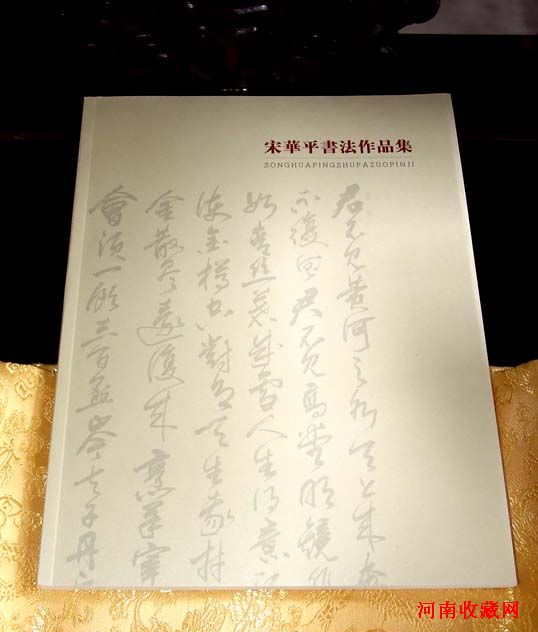 宋華平書法作品集
SONGHUAPINGSHUFAZUOPINJI
君不見黄河之水天上来奔
不復回君不見高堂明鏡悲
如青丝暮成雪人生得意須
使金樽空對月天生我材
金散尽還復来烹羊宰
會須一飲三百盃岑夫子丹
河南收藏网